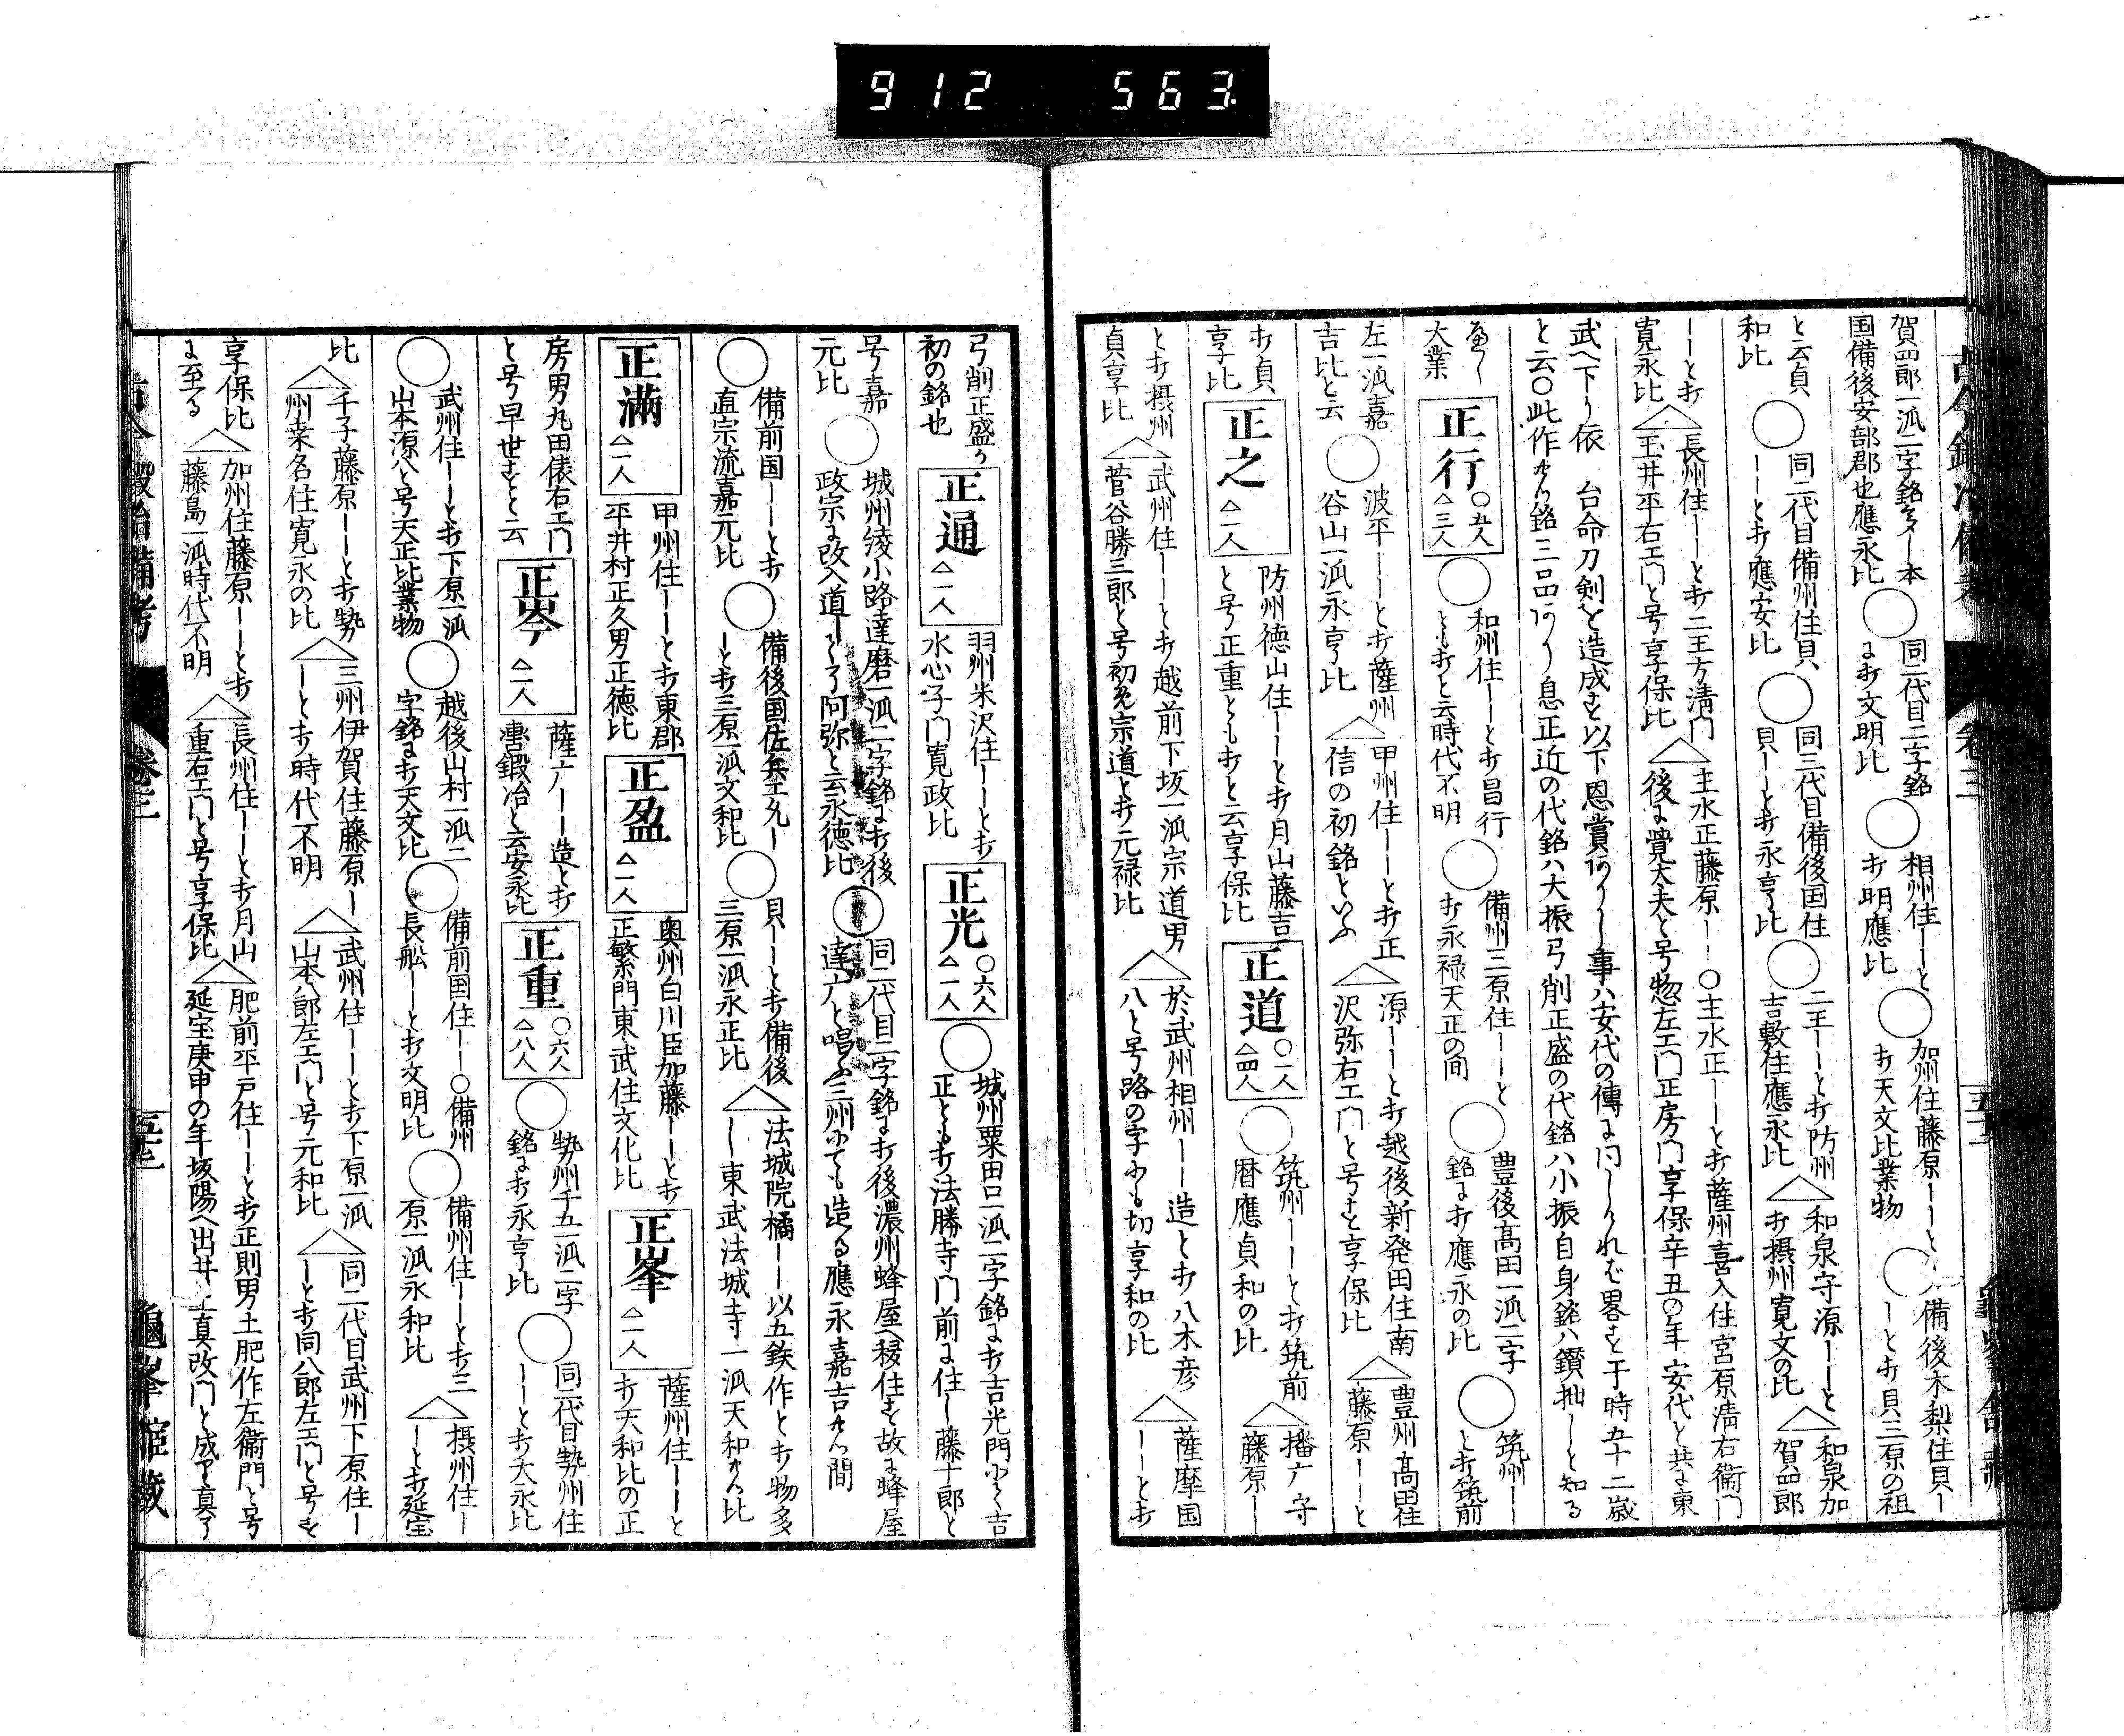 912 563
賀四郎一派二字銘多ー本
国備後安部郡也應永比
◯同二代目二字銘
ニ打文明比
◯相州住ーと
打明應比
◯加州住藤原ーーと
打天文比業物
◯備後木梨住貝ー
ーと打貝三原の祖
と云貞
和比
◯同二代目備州住貝
ーーと打應安比
◯同三代目備後国住
貝ーと打永享比
◯二王ーーと打防州
吉敷住應永比
△和泉守源ーーと
打摂州寛文の比
△和泉加
賀四郎
ーーと打
寛永比
△長州住ーーと打二王方清門
玉井平右エ門と号享保比
△主水正藤原ーー〇主水正ーーと打薩州喜入住宮原清右衛門
後に覺太夫と号惣左エ門正房門享保辛丑の年安代と共に東
武へ下り依 台命刀剣を造成す以下恩賞ありし事ハ安代の傳に同しけれむ畧す于時五十二歳
と云〇此作れ銘三品あり息正近の代銘ハ大振弓削正盛の代銘ハ小振自身銘ハ鑚拙ーと知る
大業
正行 〇五人 △三人
◯和州住ーーと打昌行
とも打と云時代不明
◯備州三原住ーーと
打永禄天正の間
◯豊後髙田一派二字
銘に打應永の比
◯筑州ー
と打筑前
左一派嘉
吉比と云
◯波平ーーと打薩州
谷山一派永享比
△甲州住ーーと打正
信の初銘といふ
△源ーーと打越後新発田住南
沢弥右エ門と号す享保比
△豊州髙田住
藤原ーーと
打貞
享比
正之 △一人
防州徳山住ーーと打月山藤吉
と号正重とも打と云享保比
正道 〇一人 △四人
◯筑州ーーと打筑前
暦應貞和の比
△播广守
藤原ー
と打摂州
貞享比
△武州住ーーと打越前下坂一派宗道男
菅谷勝三郎と号初光宗道と打元禄比
△於武州相州ーー造と打八木彦
八と号路の字にも切享和の比
△薩摩国
ーーと打
弓削正盛ガ
初の銘也
正通 △一人
羽州米沢住ーーと打
水心子門寛政比
正光 〇六人 △一人
◯城州粟田口一派二字銘に打吉光門にて吉
正とも打法勝寺門前に住ー藤十郎と
号嘉
元比
◯城州綾小路達磨一派二字銘に打後
政宗に改入道ーて了阿弥と云永徳比
◯同二代目二字銘に打後濃州蜂屋へ移住す故に蜂屋
達广と唱ふ三州にても造る應永嘉吉れ間
◯備前国ーーと打
直宗流嘉元比
◯備後国佐兵エ尉ー
ーと打三原一派文和比
◯貝ーーと打備後
三原一派永正比
△法城院橘ーー以五鉄作と打物多
ー東武法城寺一派天和れ比
正滿 △一人
甲州住ーーと打東郡
平井村正久男正徳比
正盈 △一人
奥州白川臣加藤ーーと打
正繁門東武住文化比
正峯 △一人
薩州住ーーと
打天和比の正
房男丸田俵右エ門
と号早世すと云
正岑 △一人
薩广ーー造と打
恵鍛冶と云安永比
正重 〇六人 △八人
◯勢州千五一派二字
銘に打永享比
◯同二代目勢州住
ーーと打大永比
◯武州住ーーと打下原一派
山本源八と号天正比業物
◯越後山村一派二
字銘に打天文比
◯備前国住ーー〇備州
長舩ーーと打文明比
◯備州住ーーと打三
原一派永和比
△摂州住ー
ーと打延宝
比
△千子藤原ーーと打勢
州桒名住寛永の比
△三州伊賀住藤原ー
ーと打時代不明
△武州住ーーと打下原一派
山本八郎左エ門と号元和比
△同二代目武州下原住ー
ーと打同八郎左エ門と号す
享保比
に至る
△加州住藤原ーーと打
藤島一派時代不明
△長州住ーーと打月山
重右エ門と号享保比
△肥前平戸住ーーと打正則男土肥作左衛門と号
延宝庚申の年坂陽へ出井上真改門と成り真了
鍛冶備考 卷三